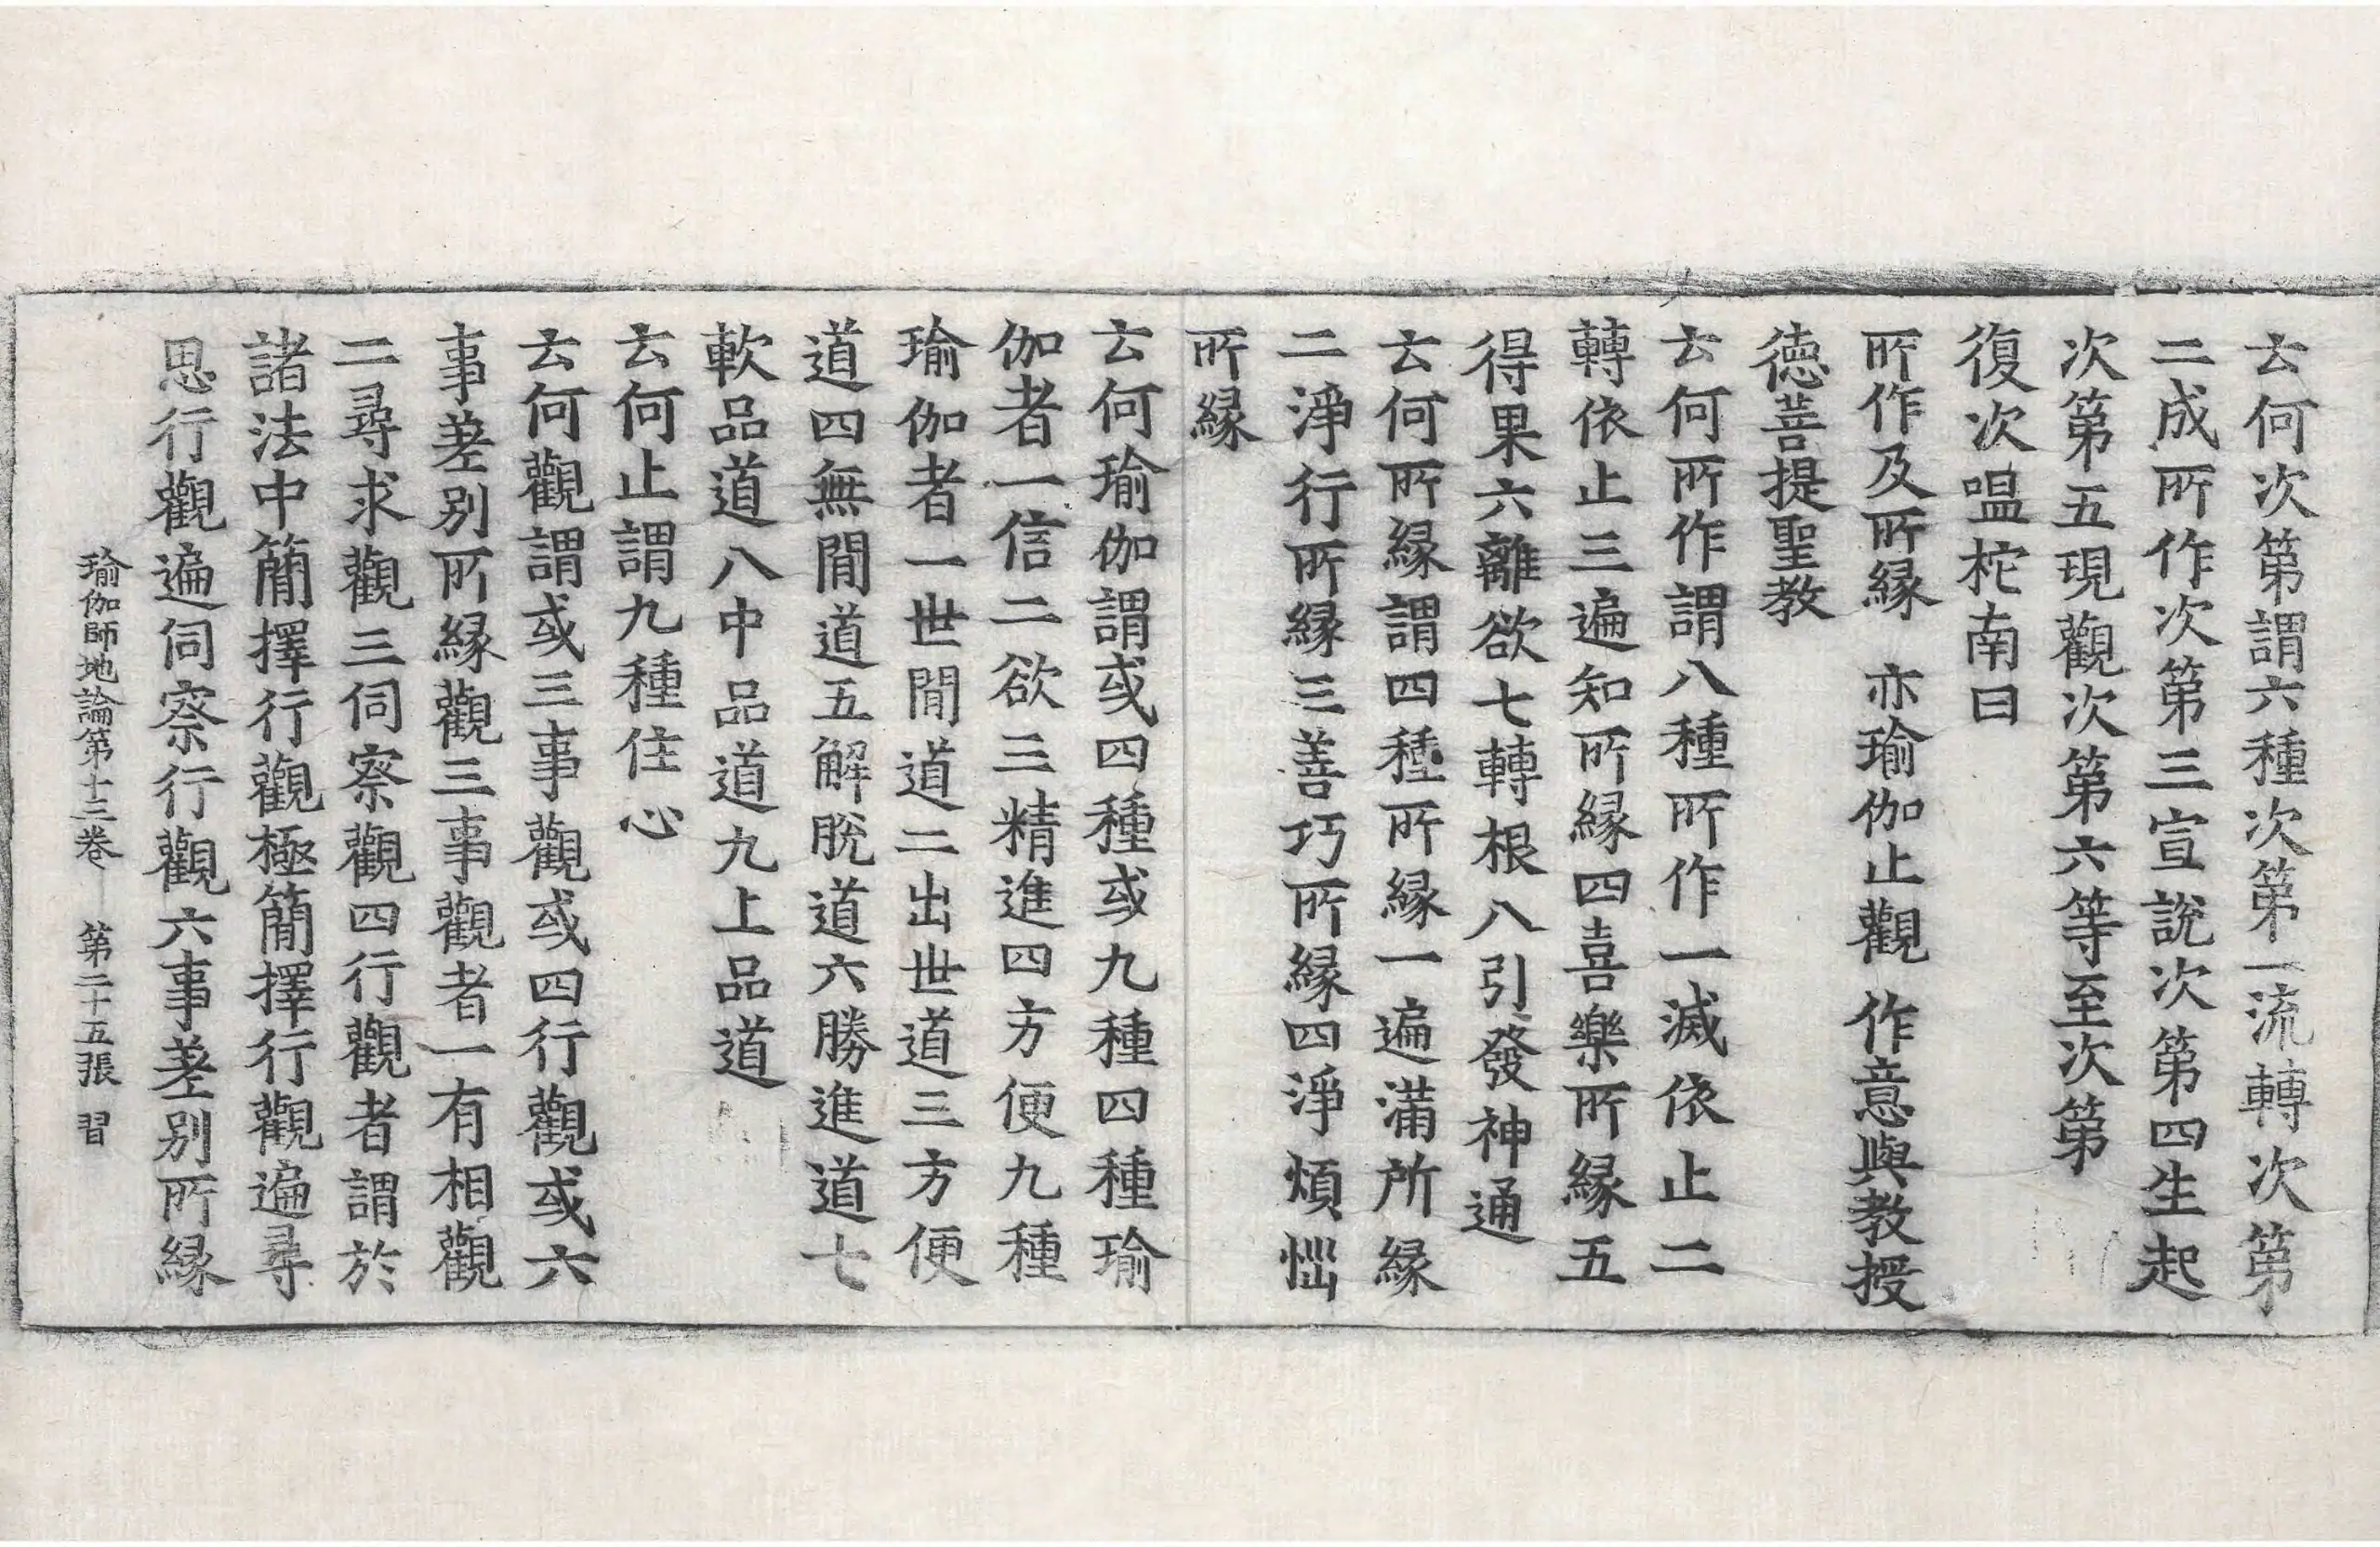 云何次第謂六種次第一流轉次第
二成所作次第三宣說次第四生起
次第五現觀次第六等至次第
復次嗢柁南曰
所作及所縁　亦瑜伽止觀　作意與教授
徳菩提聖教
云何所作謂八種所作一滅依止二
轉依止三遍知所縁四喜樂所縁五
得果六離欲七轉根八引發神通
云何所縁謂四種所縁一遍滿所縁
二淨行所縁三善巧所縁四淨煩惱
所縁
云何瑜伽謂或四種或九種四種瑜
伽者一信二欲三精進四方便九種
瑜伽者一世間道二出世道三方便
道四無間道五解脫道六勝進道七
軟品道八中品道九上品道
云何止謂九種住心
云何觀謂或三事觀或四行觀或六
事差別所縁觀三事觀者一有相觀
二尋求觀三伺察觀四行觀者謂於
諸法中簡擇行觀極簡擇行觀遍尋
思行觀遍伺察行觀六事差別所縁
瑜伽師地論第十三卷　第二十五張　習